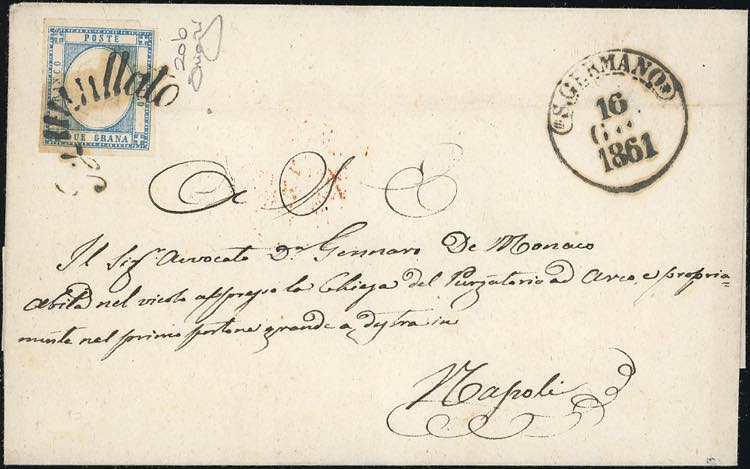 POSTE
FRANCO
GRANO
DUE GRANA
Annullato
20b
S. GERMANO
16
GIU
1861
A S E
Il Sigr Avvocato Dn Gennaro De Monaco
abita nel vicolo appresso la Chiesa del Purgatorio ad Arco, e propria-
mente nel primo portone grande a destra in
Napoli